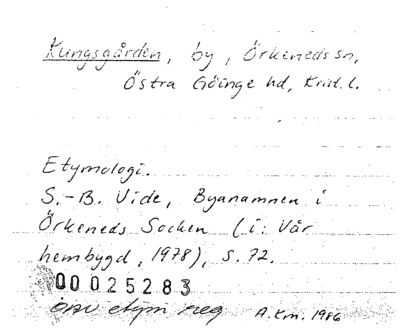 Kungsgården, by, Örkeneds sn,
Östra Göinge hd, Krist. l.
Etymologi.
S.-B. Vide, Byanamnen i
Örkeneds Socken (i: Vår
hembygd, 1978), s. 72.
00025283
etym reg A.Km. 1986